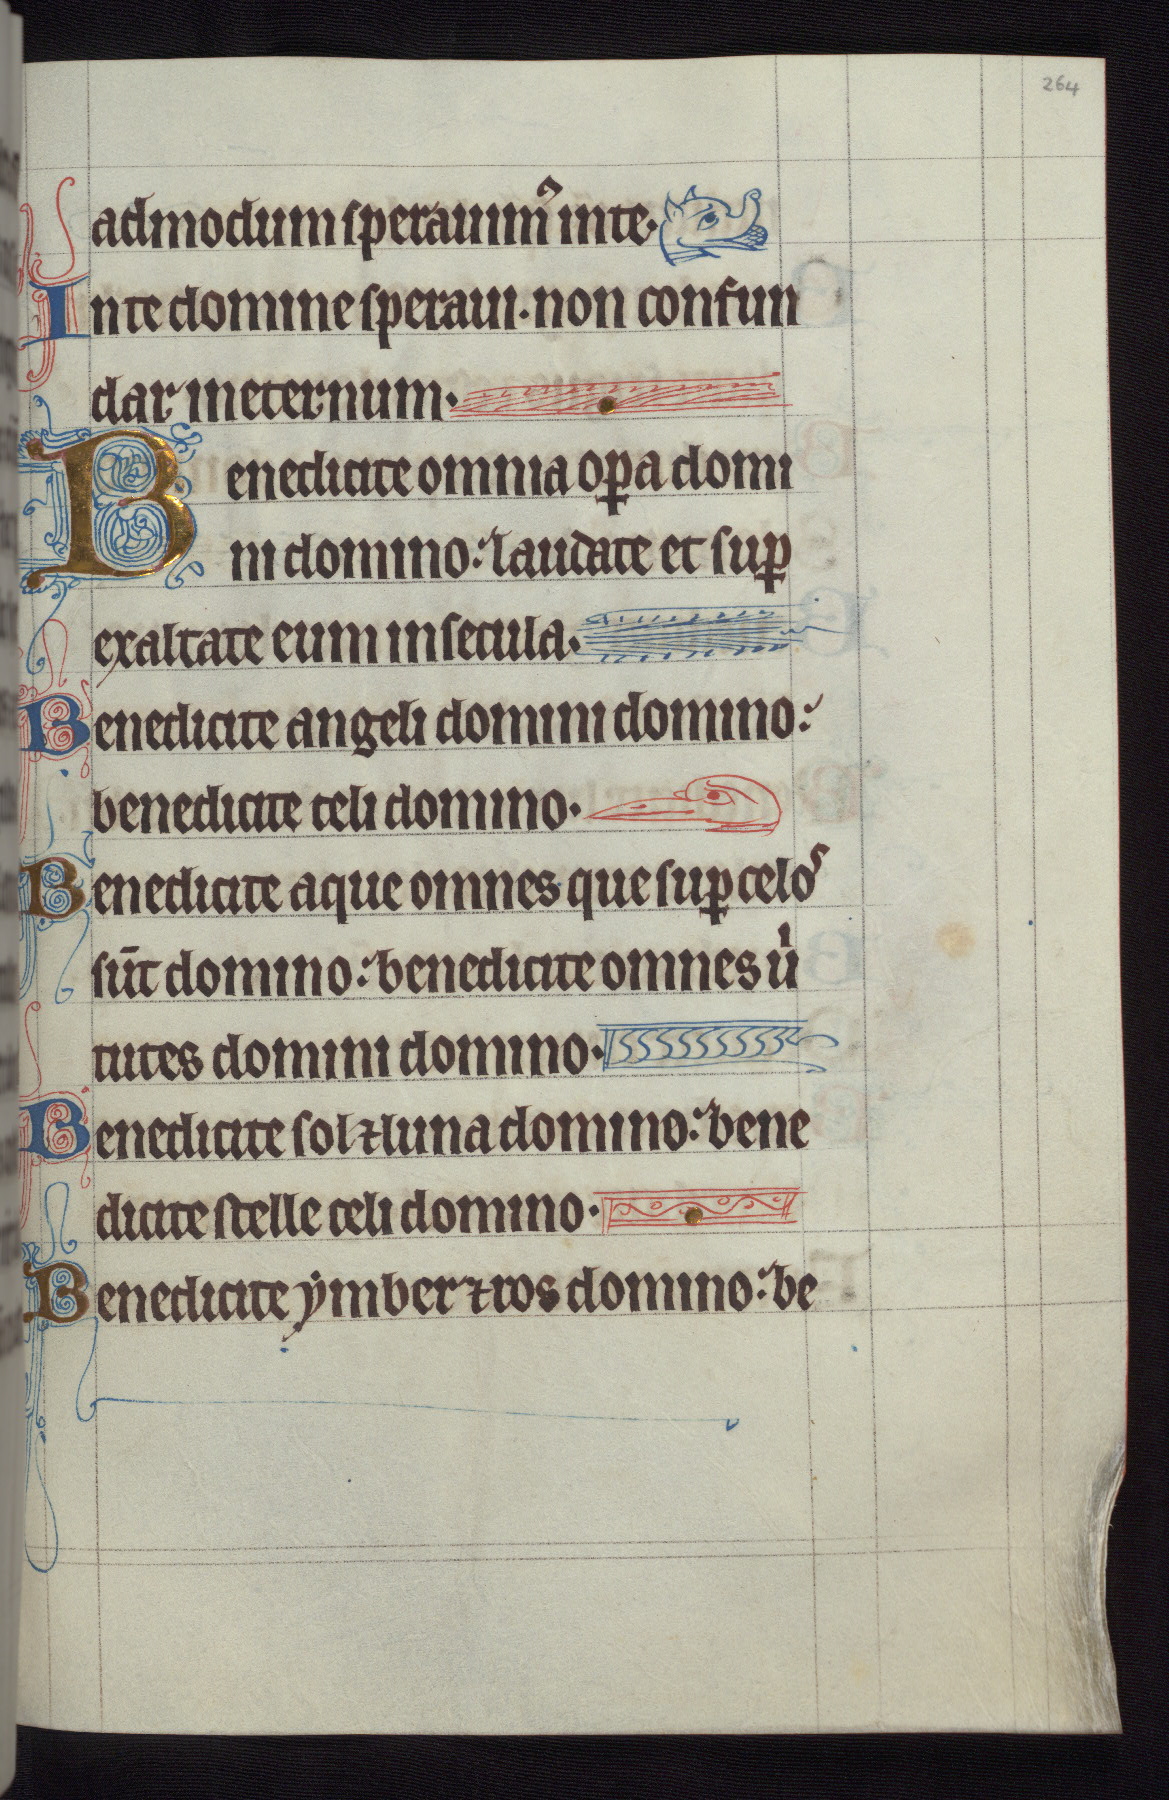 264
admodum sperauimꝰ inte·
Inte domine speraui· non confun
dar ineternum·
Benedicite omnia oꝑa domi
ni domino: laudate et suꝑ
exaltate eum insecula·
Benedicite angeli domini domino:
benedicite celi domino·
Benedicite aque omnes que suꝑ celos
sūt domino: benedicite omnes uͥ
tutes domini domino·
Benedicite sol ⁊ luna domino: bene
dicite stelle celi domino·
Benedicite ẏmber ⁊ ros domino: be